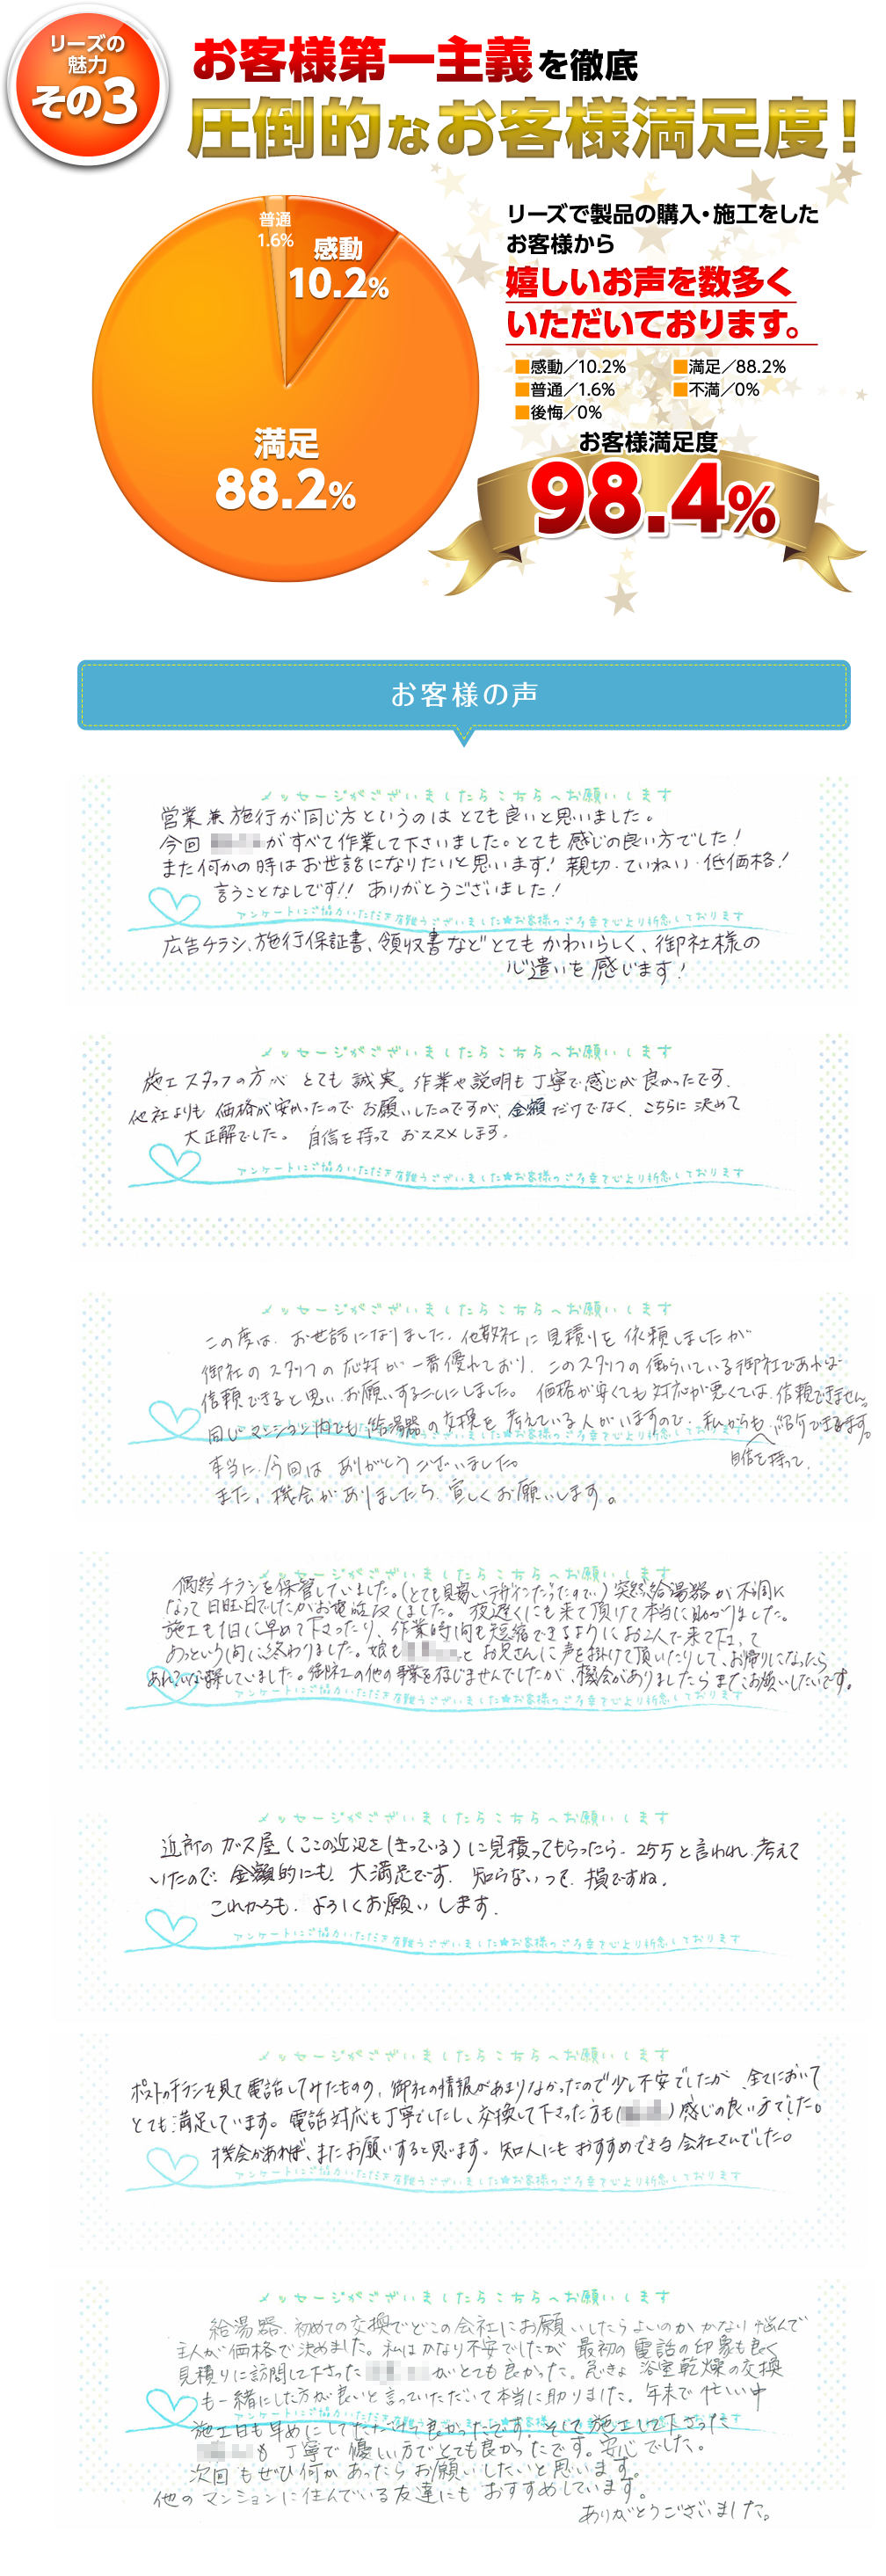 リーズの
魅力
その3
お客様第一主義を徹底
圧倒的なお客様満足度！
普通
1.6%
感動
10.2%
満足
88.2%
リーズで製品の購入・施工をした
お客様から
嬉しいお声を数多く
いただいております。
■感動／10.2% ■満足／88.2%
■普通／1.6% ■不満／0%
■後悔／0%
お客様満足度
98.4%
お客様の声
メッセージがございましたらこちらへお願いします
営業兼施行が同じ方というのはとても良いと思いました。
今回 がすべて作業して下さいました。とても感じの良い方でした！
また何かの時はお世話になりたいと思います！親切・ていねい・低価格！
言うことなしです!! ありがとうございました！
アンケートにご協力いただき有難うございました★お客様のご多幸を心より祈念しております
広告チラシ、施行保証書、領収書などとてもかわいらしく、御社様の
心遣いを感じます！
メッセージがございましたらこちらへお願いします
施工スタッフの方がとても誠実。作業や説明も丁寧で感じが良かったです.
他社よりも価格が安かったのでお願いしたのですが、金額だけでなく、こちらに決めて
大正解でした。自信を持っておススメします。
アンケートにご協力いただき有難うございました★お客様のご多幸を心より祈念しております
メッセージがございましたらこちらへお願いします
この度は、お世話になりました。他数社に見積りを依頼しましたが
御社のスタッフの応対が一番優れており、このスタッフの働らいている御社であれば
信頼できると思い、お願いすることにしました。価格が安くても対応が悪くては、信頼できません。
同じマンション内でも給湯器の交換を考えている人がいますので、私からも、紹介できます。
アンケートにご協力いただき有難うございました★お客様のご多幸を心より祈念しております
自信を持って、
本当に、今回はありがとうございました。
また、機会がありましたら、宜しくお願いします。
メッセージがございましたらこちらへお願いします
偶然チラシを保管していました。(とても見易いデザインだったので。)突然給湯器が不調に
なって日曜日でしたがお電話しました。夜遅くにも来て頂けて本当に助かりました。
施工も1日に早めて下さったり、作業時間も短縮できるようにお2人で来て下さって
あっという間に終わりました。娘も と お兄さんに声を掛けて頂いたりして、お帰りになったら
していました。御社の他の事業を存じませんでしたが、機会がありましたらまたお願いしたいです。
アンケートにご協力いただき有難うございました★お客様のご多幸を心より祈念しております
メッセージがございましたらこちらへお願いします
近所のガス屋(ここの近辺をしきっている)に見積ってもらったら、25万と言われ、考えて
いたので、金額的にも、大満足です。知らないって、損ですね。
これからも、よろしくお願いします.
アンケートにご協力いただき有難うございました★お客様のご多幸を心より祈念しております
メッセージがございましたらこちらへお願いします
ポストのチラシを見て電話してみたものの、御社の情報があまりなかったので少し不安でしたが、全てにおいて
とても満足しています。電話対応も丁寧でしたし、交換して下さった方も( )感じの良い方でした。
機会があれば、またお願いすると思います。知人にもおすすめできる会社さんでした。
アンケートにご協力いただき有難うございました★お客様のご多幸を心より祈念しております
メッセージがございましたらこちらへお願いします
給湯器、初めての交換でどこの会社にお願いしたらよいのかかなり悩んで
主人が価格で決めました。私はかなり不安でしたが最初の電話の印象も良く
見積りに訪問して下さった がとても良かった。急きょ浴室乾燥の交換
も一緒にした方が良いと言っていただいて本当に助りました。年末で忙しい中
アンケートにご協力いただき有難うございました★お客様のご多幸を心より祈念しております
施工日も早めにしていただけて良かったです。そして施工して下さった
も丁寧で優しい方でとても良かったです。安心でした。
次回もぜひ何かあったらお願いしたいと思います。
他のマンションに住んでいる友達にもおすすめしています。
ありがとうございました。